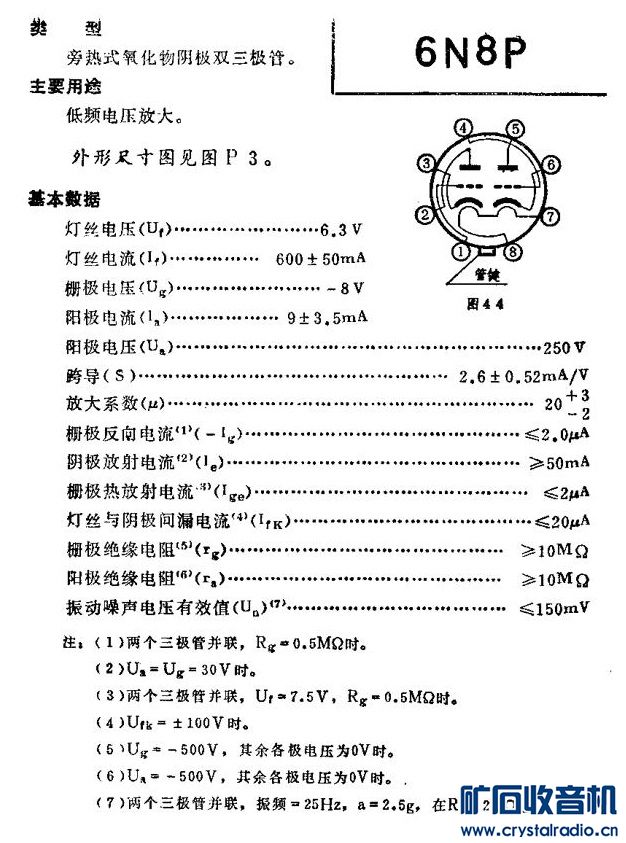 类 型
旁热式氧化物阴极双三极管。
6N8P
主要用途
低频电压放大。
外形尺寸图见图P3。
基本数据
灯丝电压(Uf)……………………6.3V
灯丝电流(If)……………… 600±50mA
栅极电压(Ug)……………………－8V
阳极电流(Ia)……………… 9±3.5mA
④ ⑤
③ ⑥
② ⑦
① ⑧
管键
图44
阳极电压(Ua)………………………………………………250V
跨导(S)………………………………………… 2.6±0.52mA/V
放大系数(μ)………………………………………………… 20 +3 −2
栅极反向电流(1)(－Ig)………………………………………≤2.0μA
阴极放射电流(2)(Ie)……………………………………… ≥50mA
栅极热放射电流(3)(Ige)……………………………………… ≤2μA
灯丝与阴极间漏电流(4)(IfK)…………………………………≤20μA
栅极绝缘电阻(5)(rg)……………………………………… ≥10MΩ
阳极绝缘电阻(6)(ra)……………………………………… ≥10MΩ
振动噪声电压有效值(Un)(7)……………………………… ≤150mV
注：(1)两个三极管并联，Rg=0.5MΩ时。
(2)Ua=Ug=30V时。
(3)两个三极管并联，Uf=7.5V，Rg=0.5MΩ时。
(4)Ufk=±100V时。
(5)Ug=－500V，其余各极电压为0V时。
(6)Ua=－500V，其余各极电压为0V时。
(7)两个三极管并联，振频=25Hz，a=2.5g，在R
矿石收音机
www.crystalradio.cn